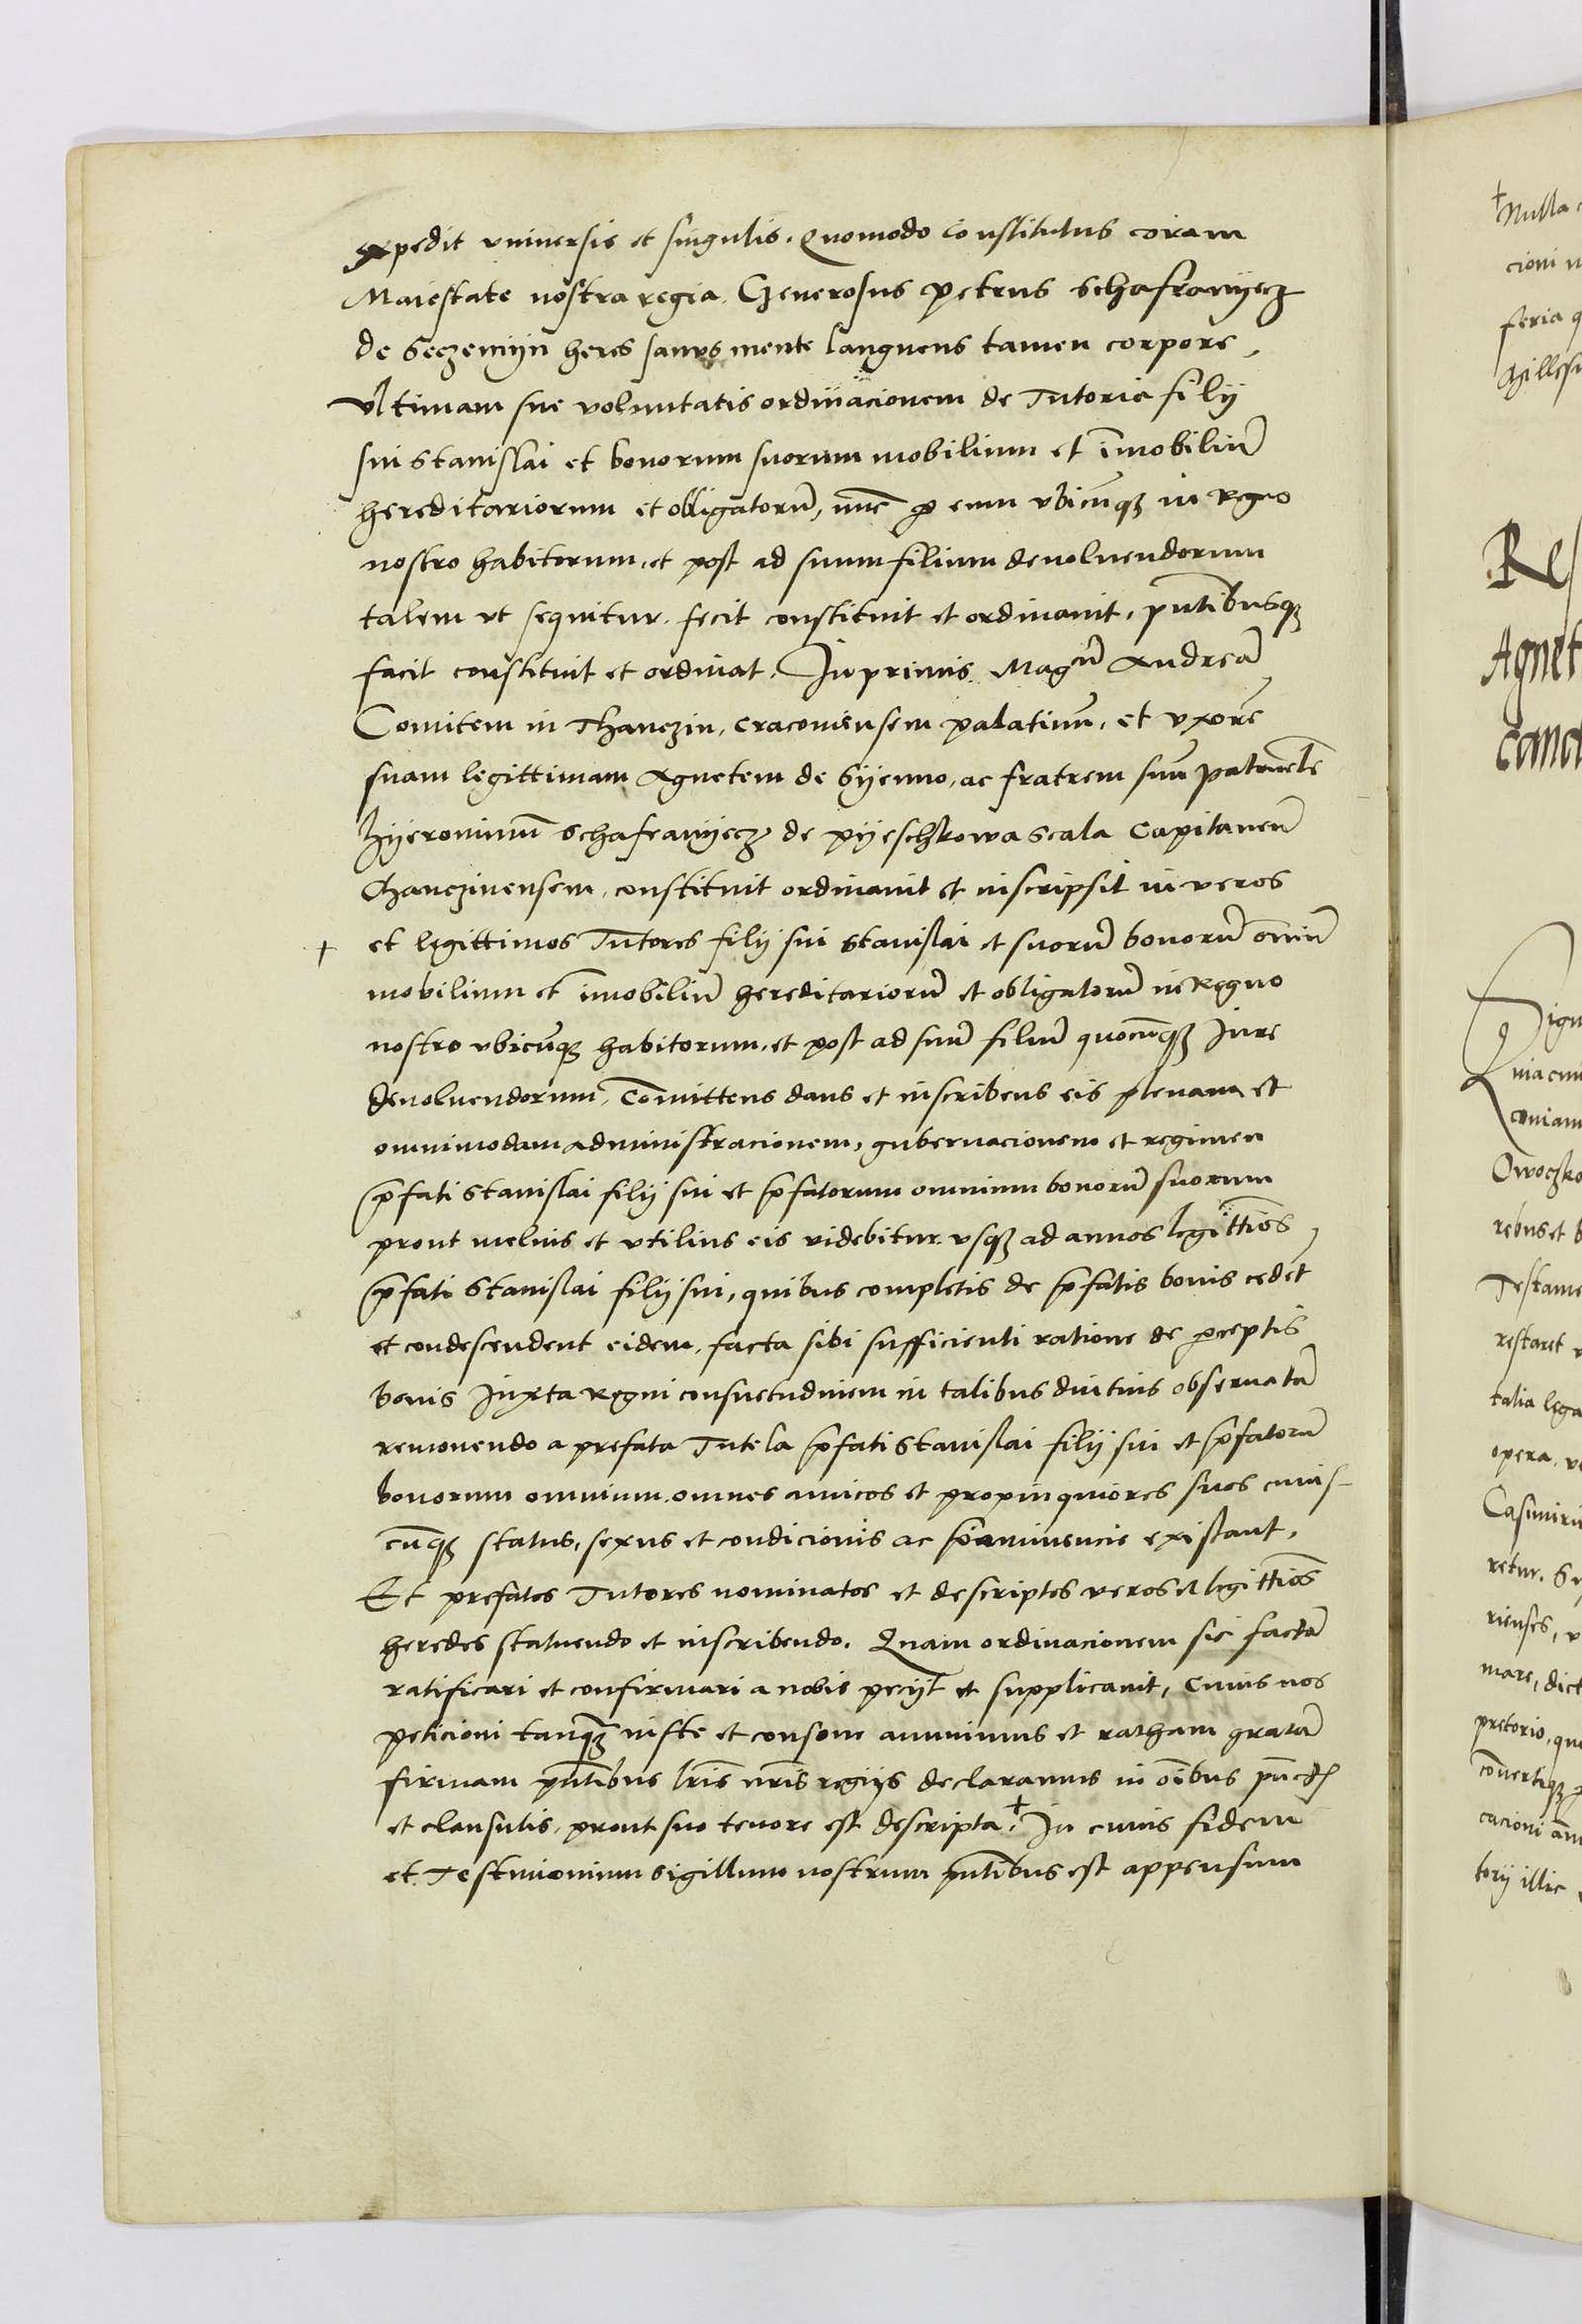 expedit vniuersis et singulis. Quomodo Constitutus coram
Maiestate nostra regia. Generosus Petrus Schafranyecz
de Seczemyn heres sanus mente languens tamen corpore,
Vltimam sue voluntatis ordinacionem de Tutoria filij
sui Stanislai et bonorum suorum mobilium et im̄obiliū
hereditariorum et obligatorū, nūc ꝑ eum vbicūqꝫ in Regno
nostro habitorum, et post ad suum filium deuoluendorum
talem vt sequitur. fecit constituit et ordinauit, pn̄tibusqꝫ
facit constituit et ordinat. Inprimis Magcū Andreā
Comitem in Thanczin, Cracouiensem palatinū, et vxorē
suam legittimam Agnetem de Syenno, ac fratrem suū patruelē
Hyeronimū Schafranyecz de Pyeschkowa Scala Capitaneū
Chanczinensem, constituit ordinauit et inscripsit in veros
+ et legittimos Tutores filij sui Stanislai et suorū bonorū om̄iū
mobilium et im̄obiliū hereditariorū et obligatorū in Regno
nostro vbicūqꝫ habitorum, et post ad suū filiū quocūqꝫ Iure
deuoluendorum, Com̄ittens dans et inscribens eis plenam et
omnimodam administracionem, gubernacionem et regimen
p̄fati Stanislai filij sui et p̄fatorum omnium bonorū suorum
prout melius et vtilius eis videbitur. vsqꝫ ad annos legittīos
p̄fati Stanislai filij sui, quibus completis de p̄fatis bonis cedēt
et condescendent eidem, facta sibi sufficienti ratione de ꝑceptis
bonis Iuxta Regni consuetudinem in talibus diutius obseruatā
remouendo a prefata Tutela p̄fati Stanislai filij sui et p̄fatorū
bonorum omnium. omnes amicos et propinquiores suos cuius-
cūqꝫ status, sexus et condicionis ac p̄aminencie existant,
Et prefatos Tutores nominatos et descriptos veros et legittīos
heredes statuendo et inscribendo. Quam ordinacionem sic factā
ratificari et confirmari a nobis peciyt et supplicauit, Cuius nos
peticioni tanqꝫ iuste et consone annuimus et ratham gratā
firmam pn̄tibus lr̄is nr̄is regijs declaramus in oībus pūctis
et clausulis, prout suo tenore est descripta.+ In cuius fidem
et Testimonium Sigillum nostrum pn̄tibus est appensum
+Nulla
cioni
feria
Millesi
Agnet
Casimiri
Testame
restaret
talia lega
opera.
retur.
rienses,
mare, dict
pretorio,
cacioni
torij illic
rebus et b